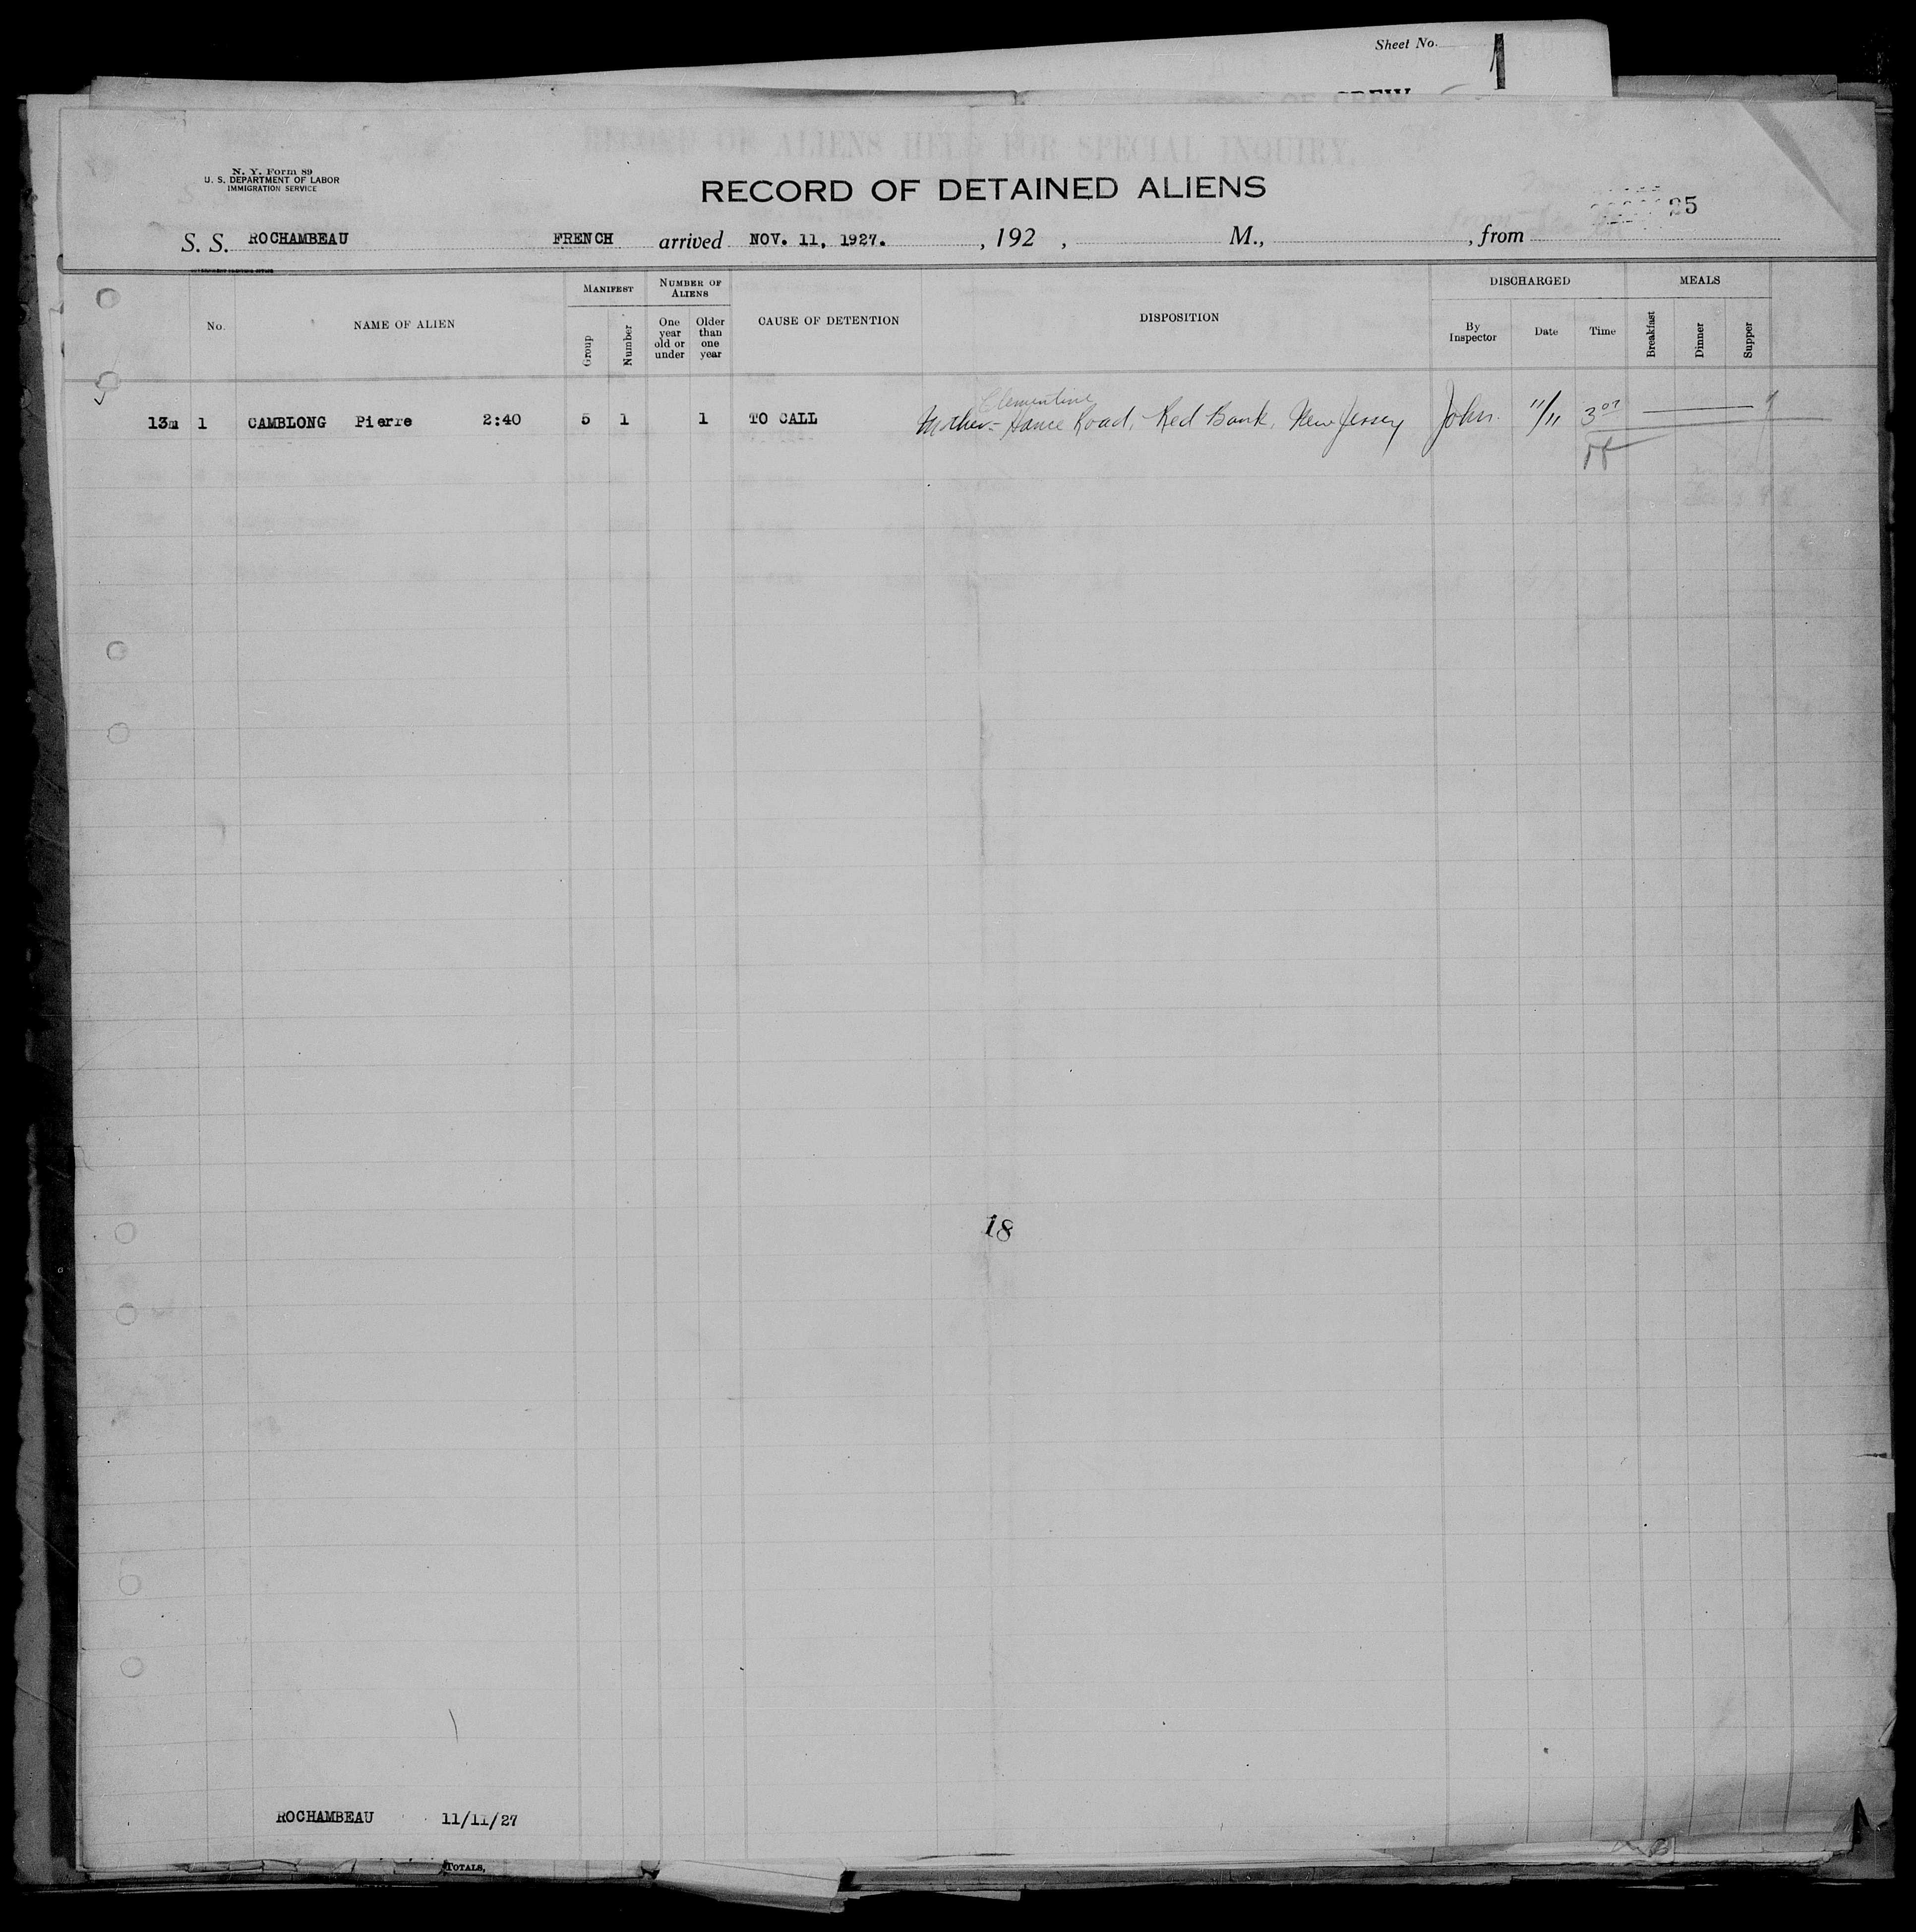 Sheet No. 1
CREW
RECORD OF ALIENS HELD FOR SPECIAL INQUIRY.
N. Y. Form 89
U. S. DEPARTMENT OF LABOR
IMMIGRATION SERVICE
RECORD OF DETAINED ALIENS
25
S. S. ROCHAMBEAU FRENCH arrived NOV. 11, 1927. , 192 , M., , from
GOVERNMENT PRINTING OFFICE
No. NAME OF ALIEN MANIFEST Group Number NUMBER OF ALIENS One year old or under Older than one year CAUSE OF DETENTION DISPOSITION DISCHARGED By Inspector Date Time MEALS Breakfast Dinner Supper
Clementine
13m 1 CAMBLONG Pierre 2:40 5 1 1 TO CALL Mother - Hance Road, Red Bank, New Jersey John. 11/11 3
18
ROCHAMBEAU 11/11/27
TOTALS,